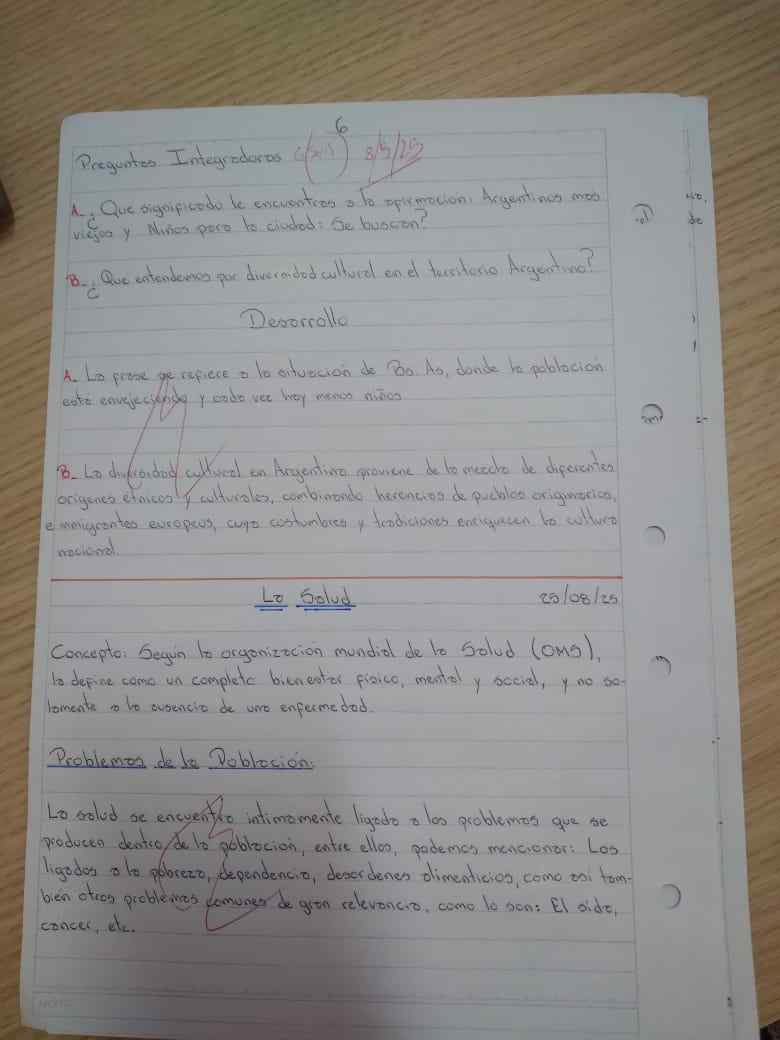 6
Preguntas Integradoras
A_ ¿Que significado le encuentras a la afirmación: Argentinas mas
viejos y Niños para la ciudad: Se buscan?
B_ ¿Que entendemos por diversidad cultural en el territorio Argentino?
Desarrollo
A_ La frase se refiere a la situación de Bs. As, donde la población
está envejeciendo y cada vez hay menos niños
B_ La diversidad cultural en Argentina proviene de la mezcla de diferentes
orígenes étnicos y culturales, combinando herencias de pueblos originarios,
e inmigrantes europeos, cuyo costumbres y tradiciones enriquecen la cultura
nacional.
La Salud 25/08/25
Concepto: Según la organización mundial de la Salud (OMS),
la define como un completo bienestar físico, mental y social, y no so-
lamente a la ausencia de una enfermedad.
Problemas de la Población:
La salud se encuentra intimamente ligada a los problemas que se
producen dentro de la población, entre ellos, podemos mencionar: Los
ligados a la pobreza, dependencia, desordenes alimenticios, como asi tam-
bién otros problemas comunes de gran relevancia, como lo son: El sida,
cancer, etc.